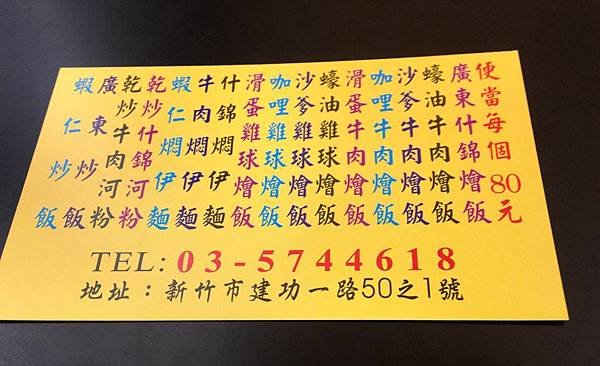 便當每個80元
廣東什錦燴飯
蠔油牛肉燴飯
沙爹牛肉燴飯
咖哩牛肉燴飯
滑蛋牛肉燴飯
蠔油雞球燴飯
沙爹雞球燴飯
咖哩雞球燴飯
滑蛋雞球燴飯
什錦燜伊麵
牛肉燜伊麵
蝦仁燜伊麵
乾炒什錦河粉
乾炒牛肉河粉
廣東炒飯
蝦仁炒飯
TEL: 03-5744618
地址：新竹市建功一路50之1號